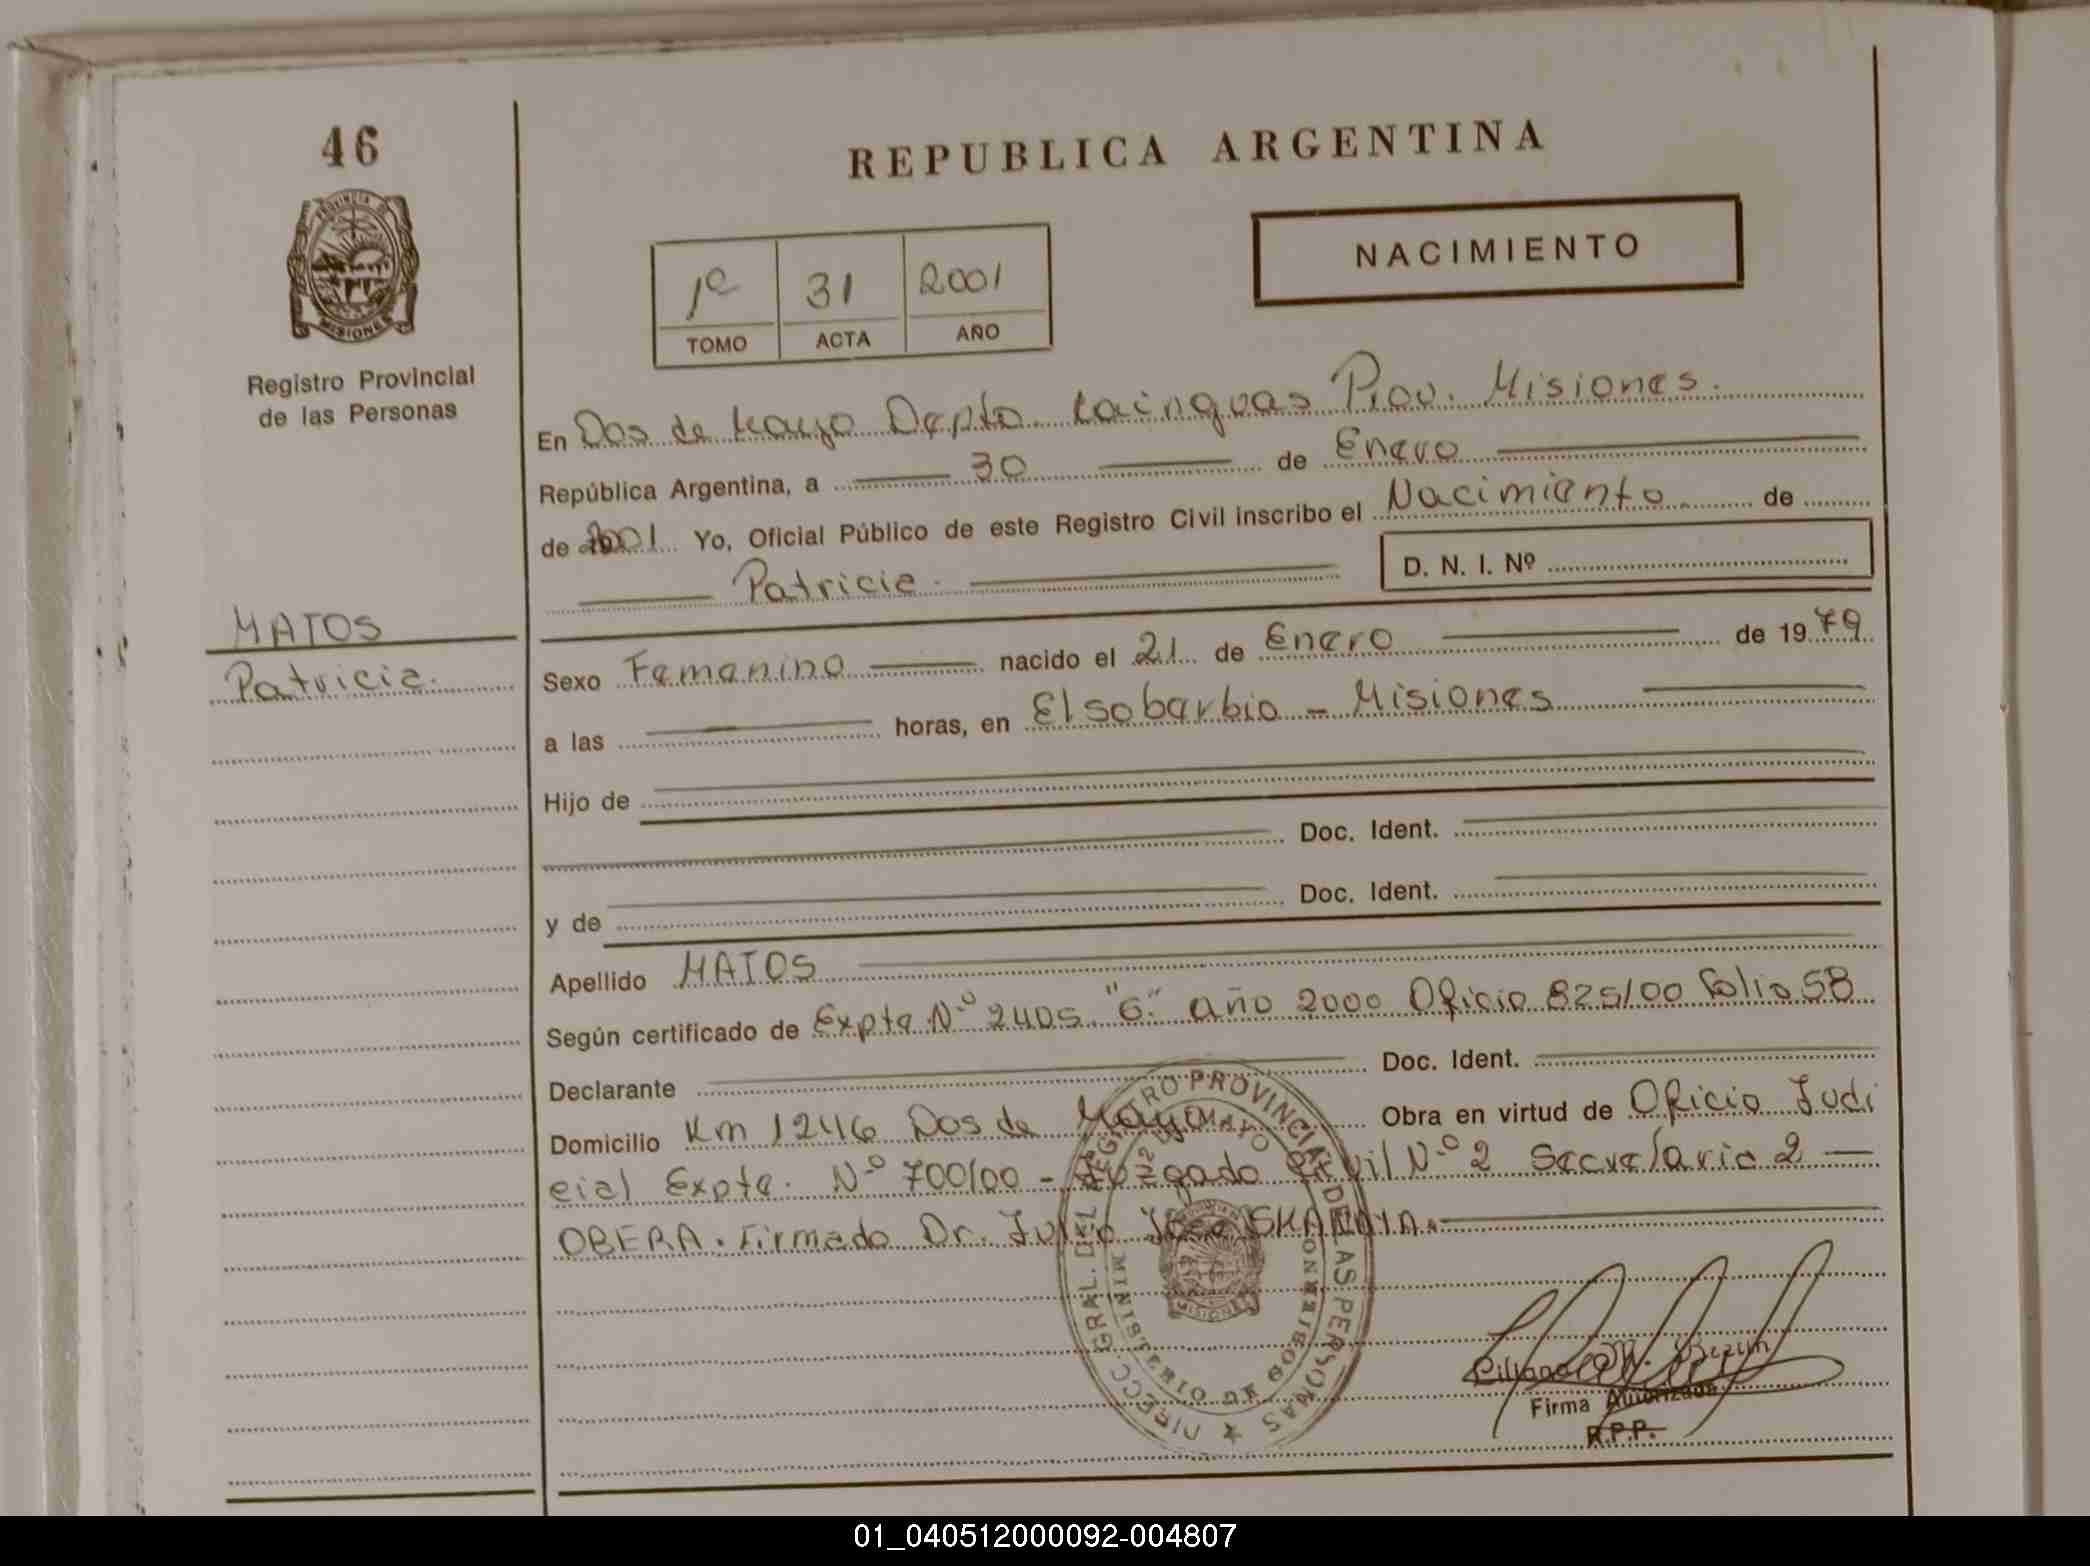 46
REPUBLICA ARGENTINA
PROVINCIA DE
MISIONES
NACIMIENTO
1º 31 2001
TOMO ACTA AÑO
Registro Provincial
de las Personas
En Dos de Mayo Depto. Cainguas Prov. Misiones.
República Argentina, a 30 de Enero
de 2001 Yo, Oficial Público de este Registro Civil inscribo el Nacimiento de
Patricia. D. N. I. Nº
MATOS
Patricia.
Sexo Femenino nacido el 21 de Enero de 1979
a las horas, en El soberbio - Misiones
Hijo de
Doc. Ident.
y de Doc. Ident.
Apellido MATOS
Según certificado de Expte Nº 2405 "G" año 2000 Oficio 825/00 folio 58
Declarante Doc. Ident.
Domicilio Km 1246 Dos de Mayo Obra en virtud de Oficio Judi
cial Expte. Nº 700/00 - Juzgado Civil Nº 2 Secretaria 2 —
OBERA. Firmado Dr. Julio Jose
DIRECC. GRAL. DEL REGISTRO PROVINCIAL DE LAS PERSONAS
2 DE MAYO
MINISTERIO DE GOBIERNO
MISIONES
Firma Autorizada
R.P.P.
01_040512000092-004807